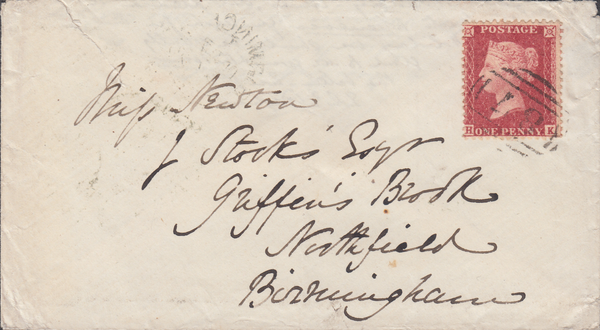 POSTAGE
H ONE PENNY K
Miss Newton
J Stocks' Esqr
Griffin's Brook
Northfield
Birmingham